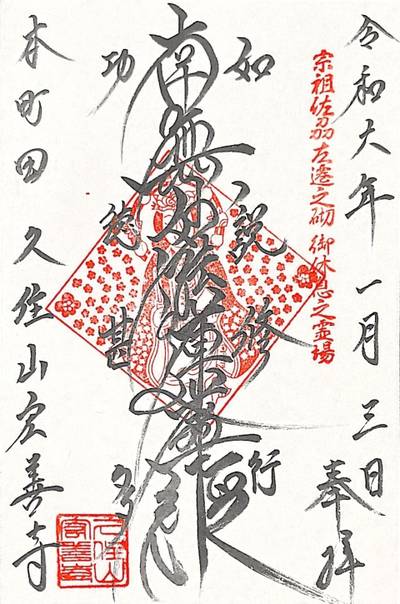 令和六年一月三日
奉拝
宗祖佐刕左遷之砌 御休息之霊場
如説修行
南無妙法蓮華経
功徳甚多
本町田 久住山宏善寺
久住山
宏善寺